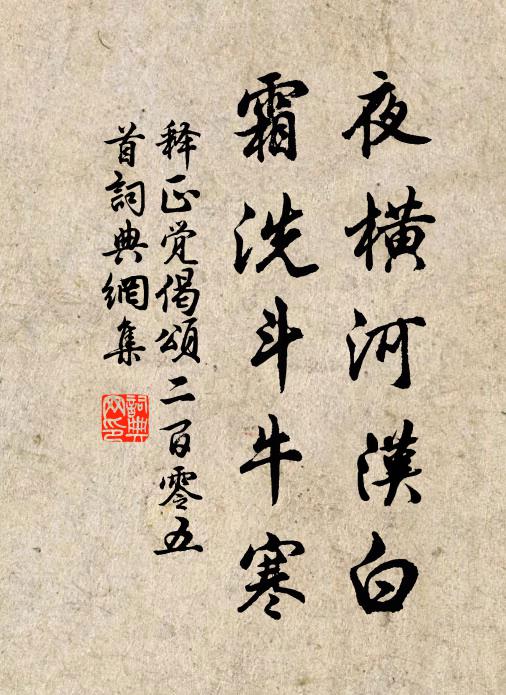 夜橫河漢白
霜洗斗牛寒
釋正覺偈頌二百零五
首詞典網集
詞典网印